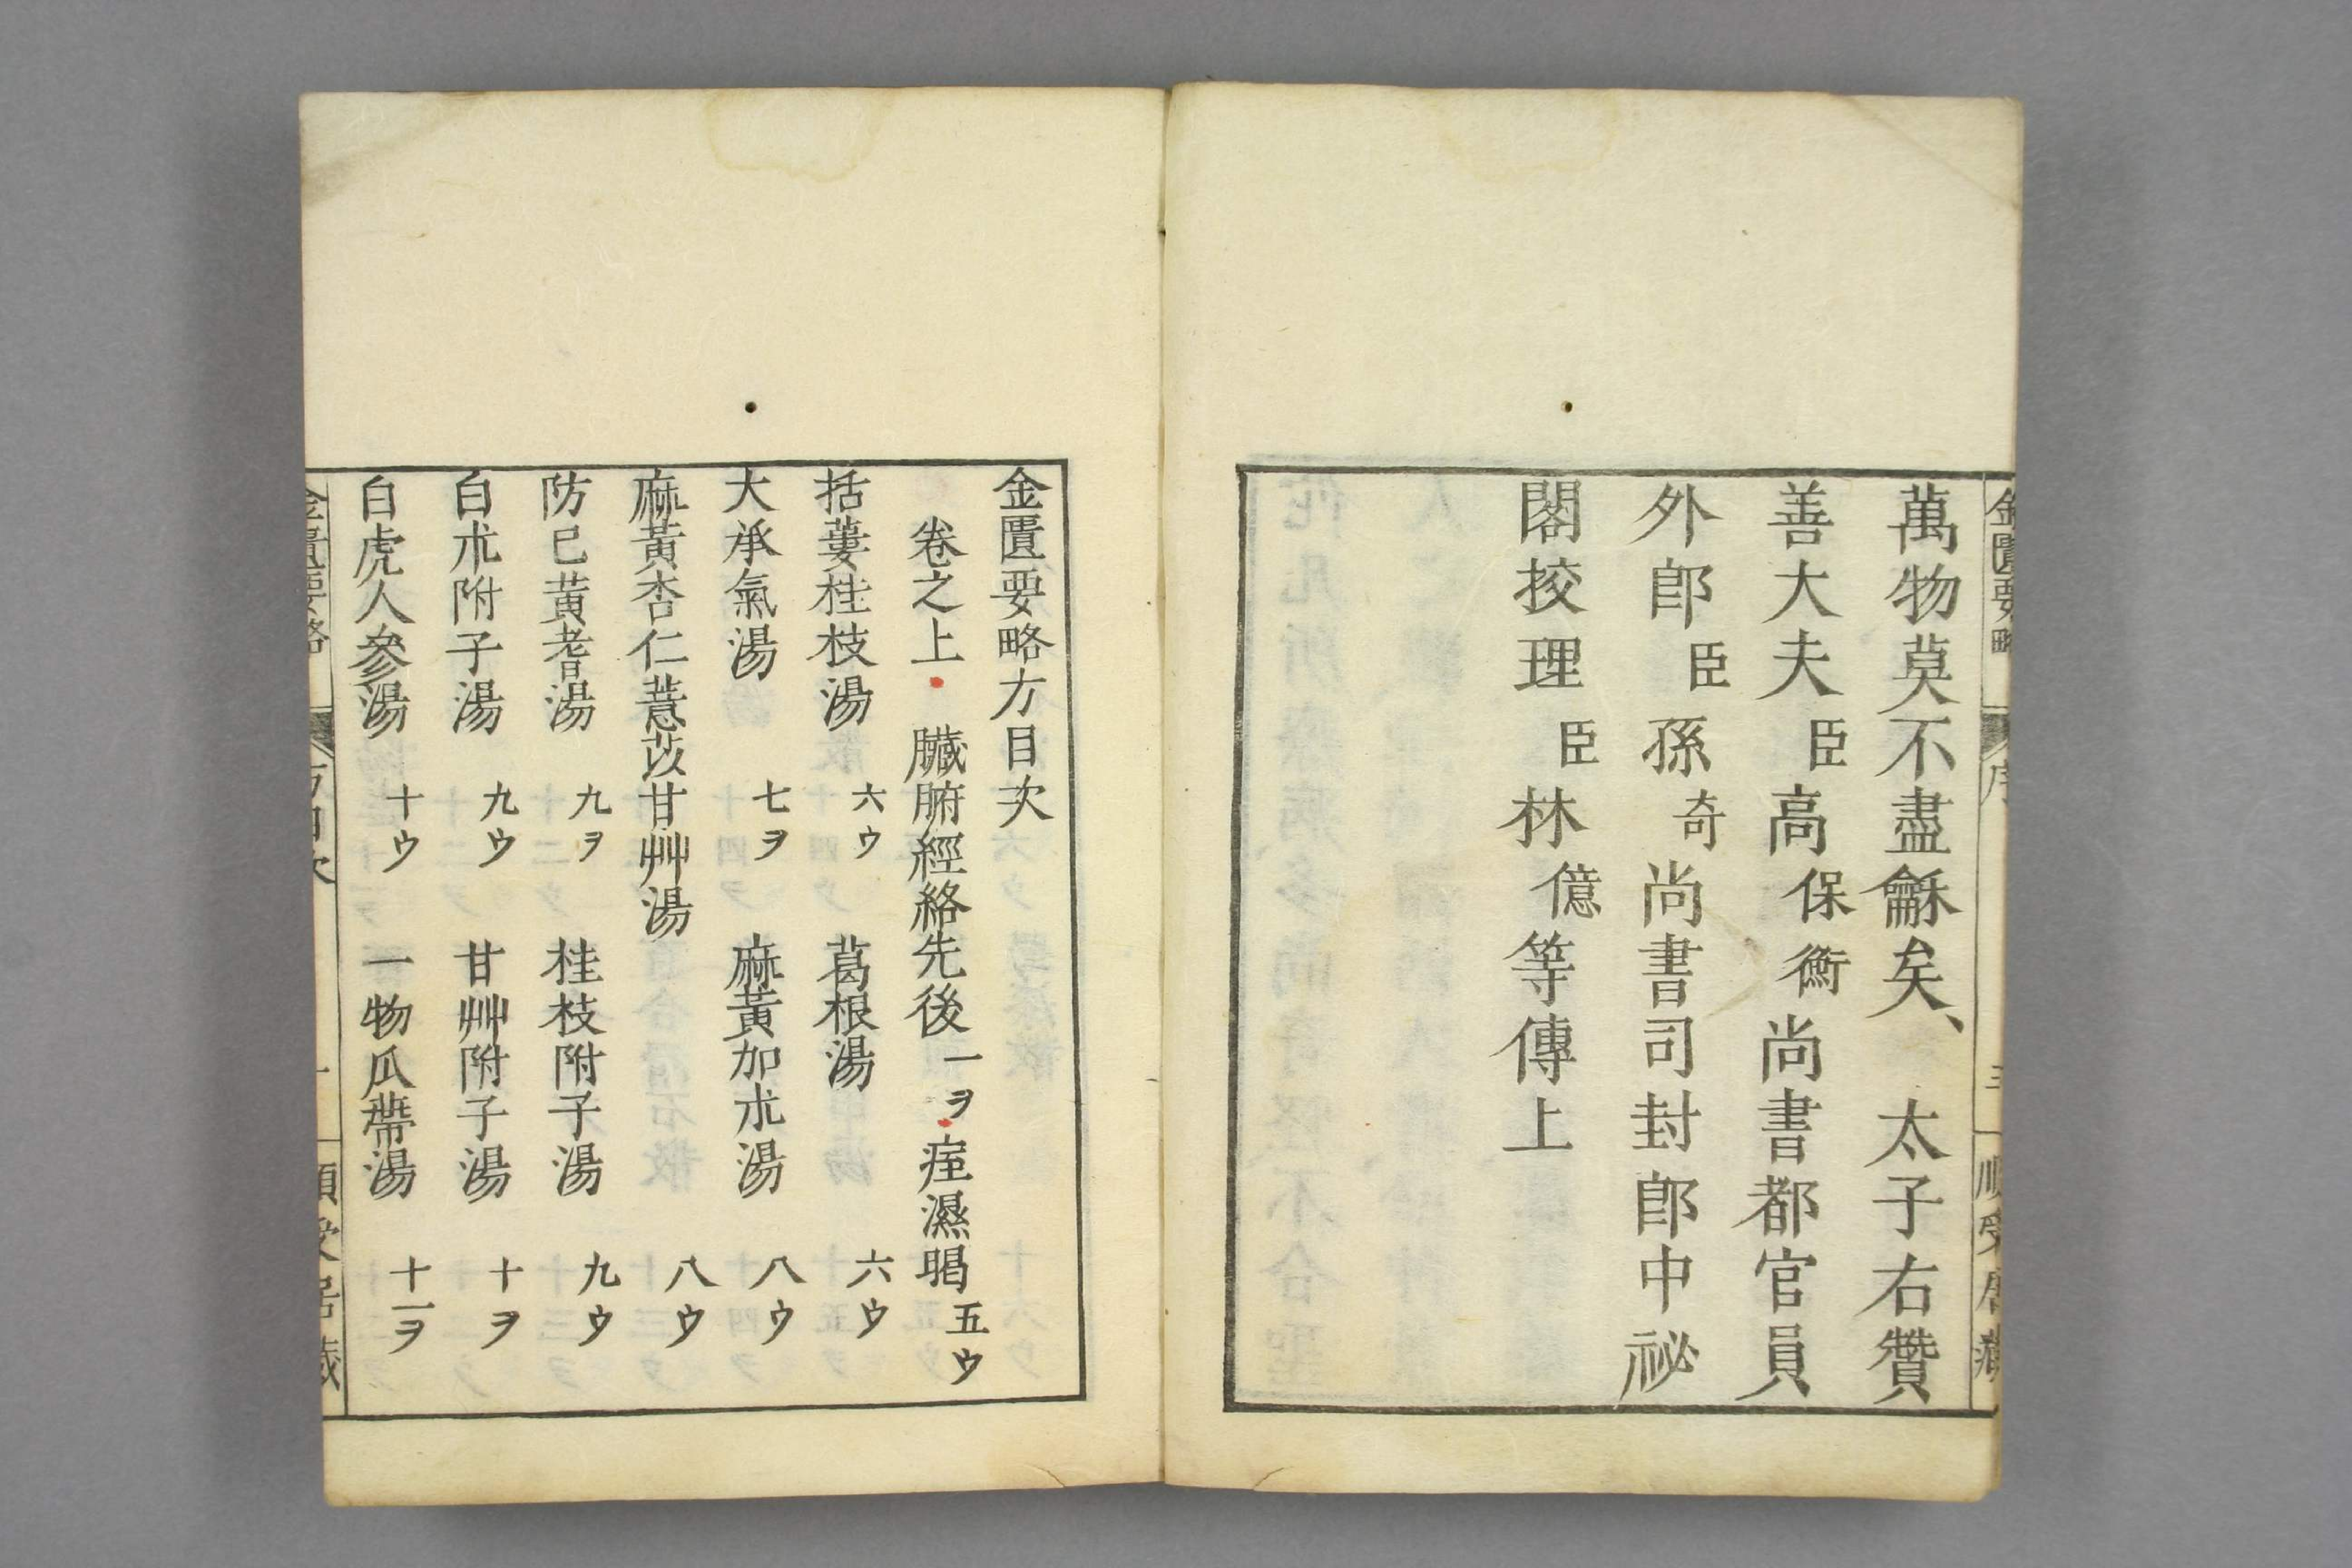 萬物莫不盡龢矣、太子右贊
善大夫臣高保衡尚書都官員
外郎臣孫奇尚書司封郎中祕
閣挍理臣林億等傳上
金匱要略方目次
卷之上 臟腑經絡先後一ヲ 痓濕暍五ウ
括蔞桂枝湯 六ウ 葛根湯 六ウ
大承氣湯 七ヲ 麻黃加朮湯 八ウ
麻黃杏仁薏苡甘艸湯 八ウ
防已黃耆湯 九ヲ 桂枝附子湯 九ウ
白朮附子湯 九ウ 甘艸附子湯 十ヲ
白虎人參湯 十ウ 一物瓜蔕湯 十一ヲ